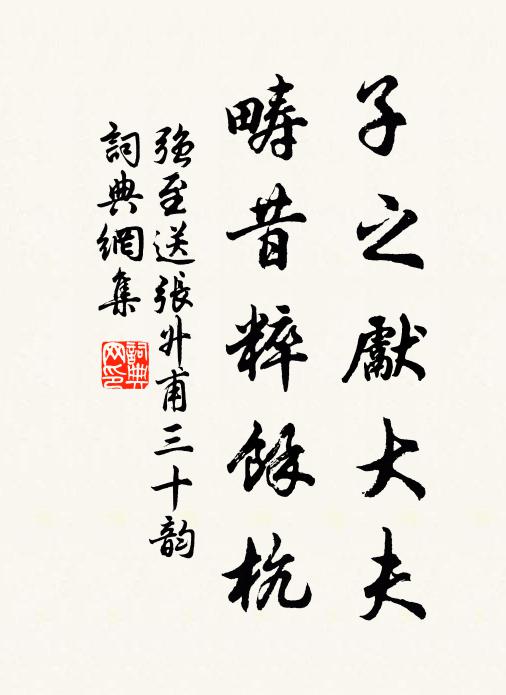 子之獻大夫
疇昔粹餘杭
強至送張升甫三十韵
詞典網集
詞典
网印